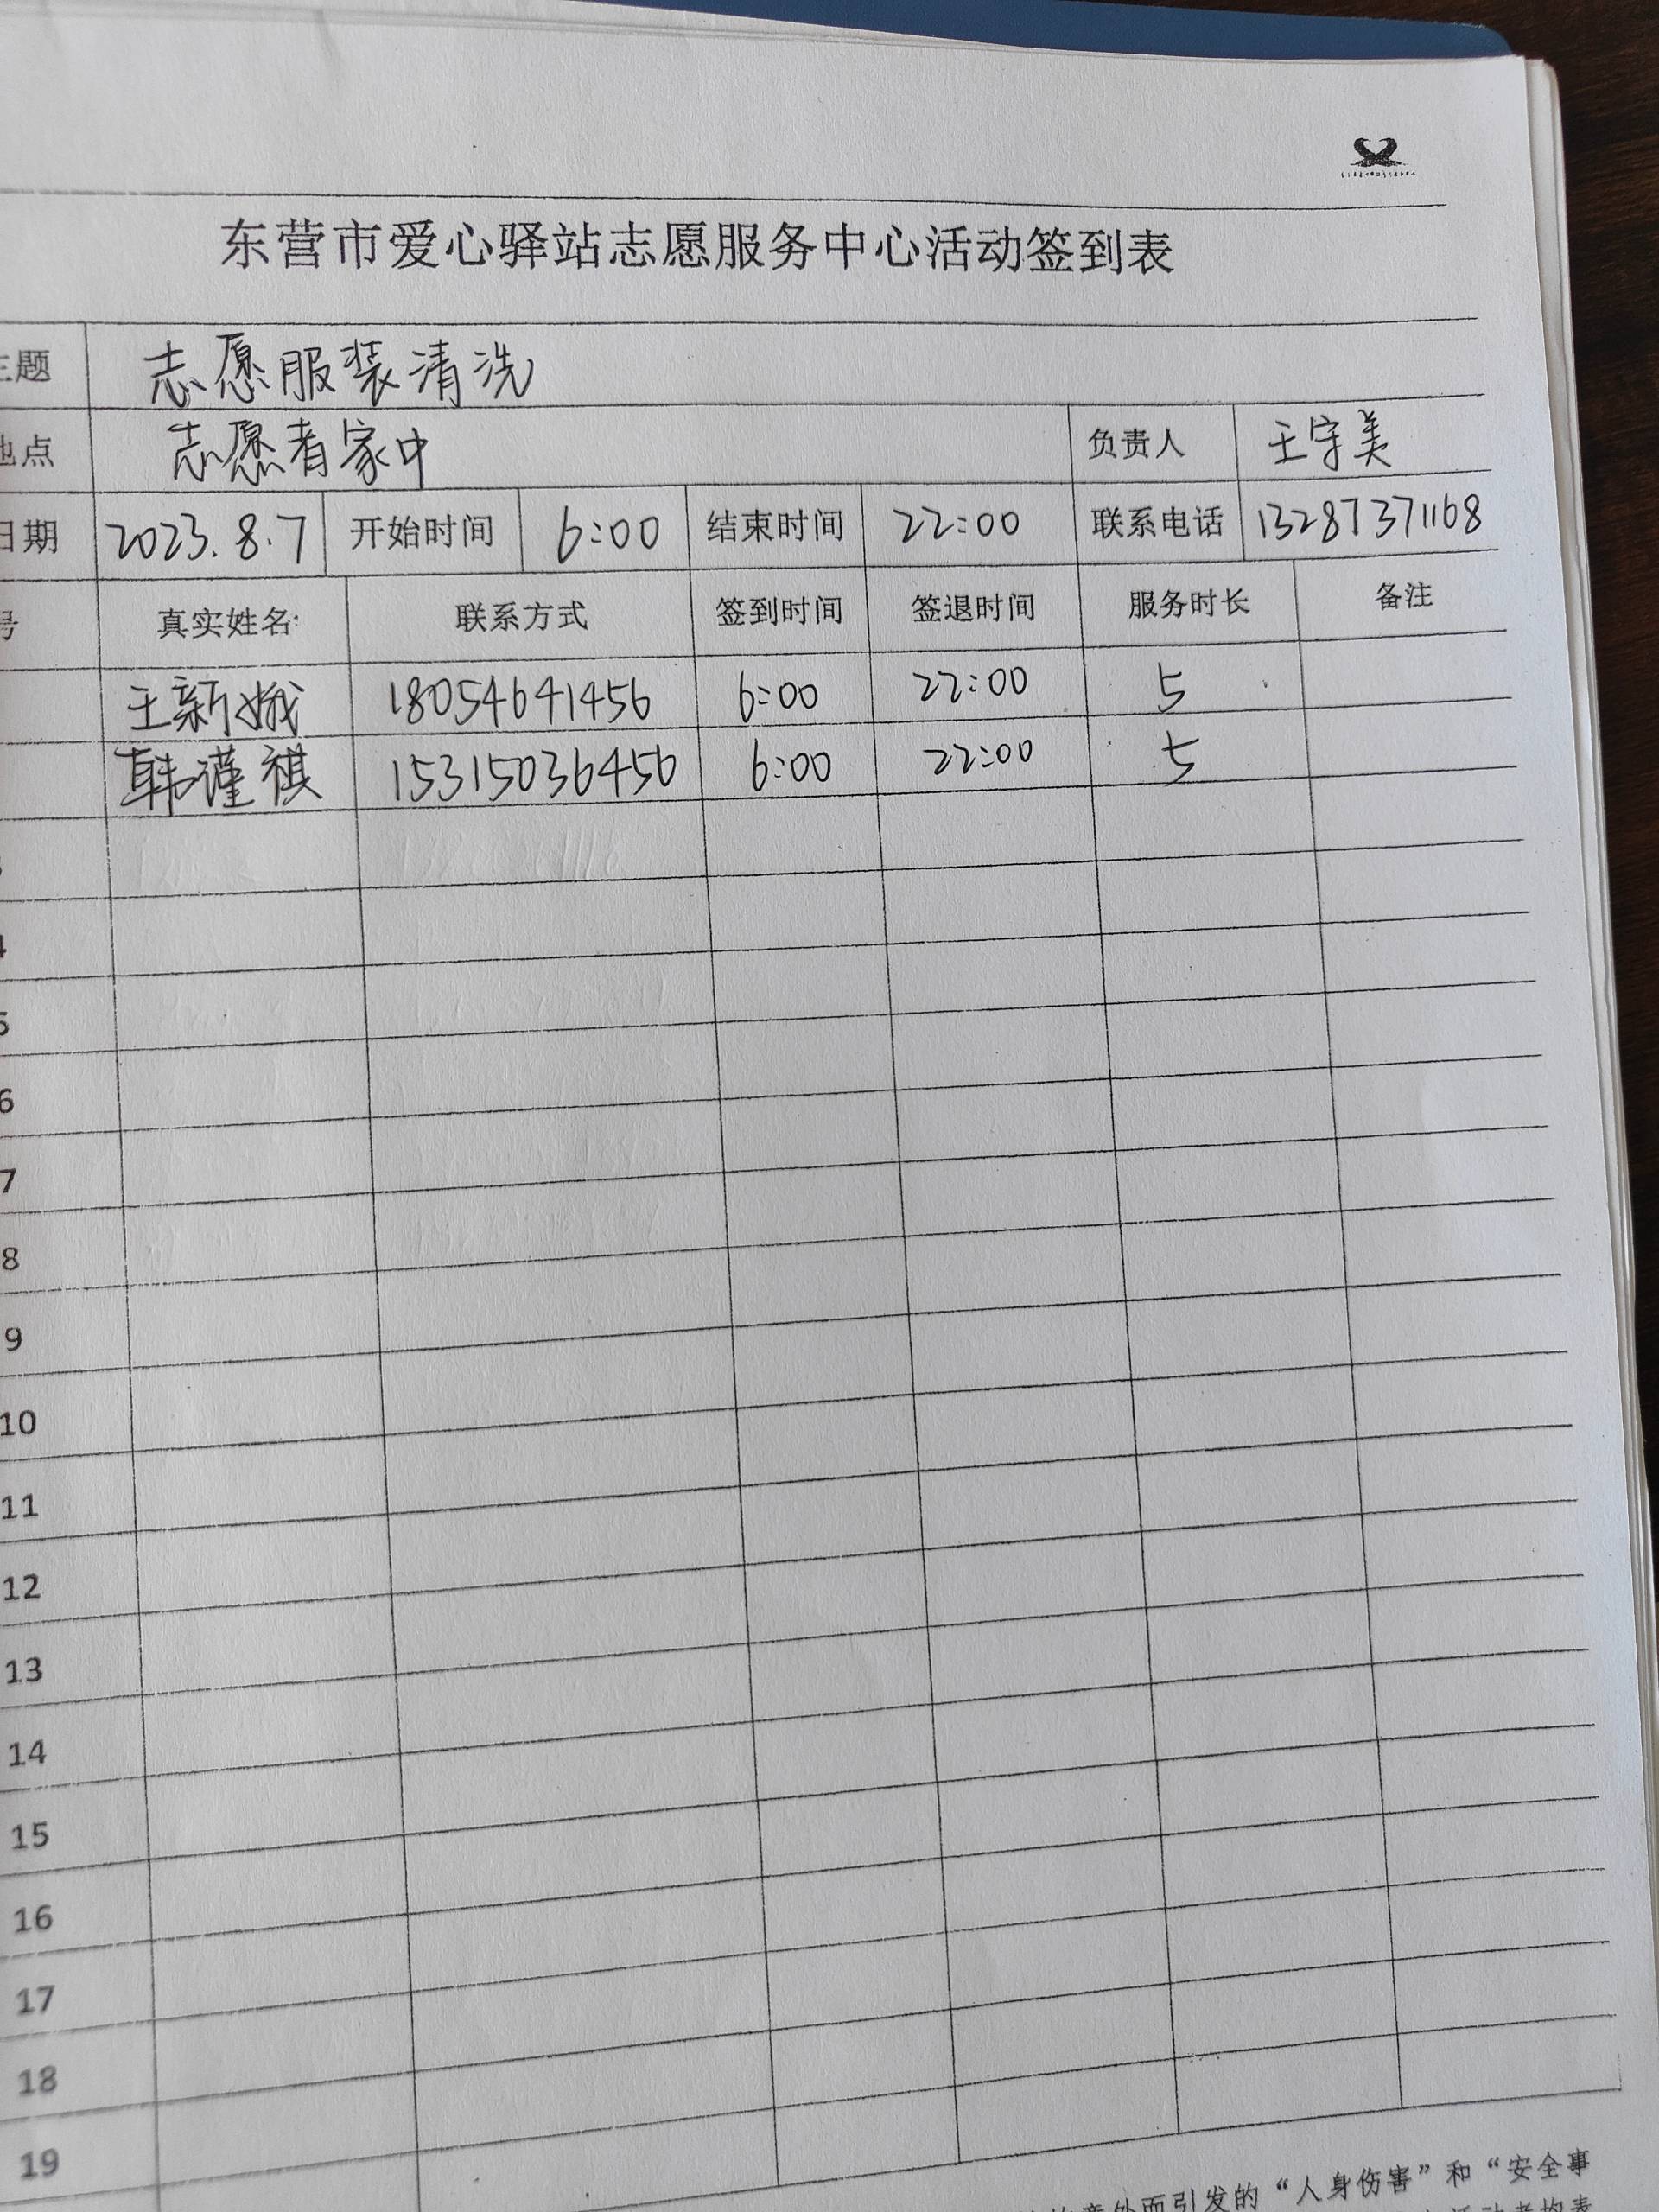 东营市爱心驿站志愿服务中心活动签到表
主题 志愿服装清洗
地点 志愿者家中 负责人 王守美
日期 2023.8.7 开始时间 6:00 结束时间 22:00 联系电话 13287371168
号 真实姓名: 联系方式 签到时间 签退时间 服务时长 备注
王新娥 18054641456 6:00 22:00 5
韩谨祺 15315036456 6:00 22:00 5
4
5
6
7
8
9
10
11
12
13
14
15
16
17
18
19
意外而引发的“人身伤害”和“安全事
活动者均表